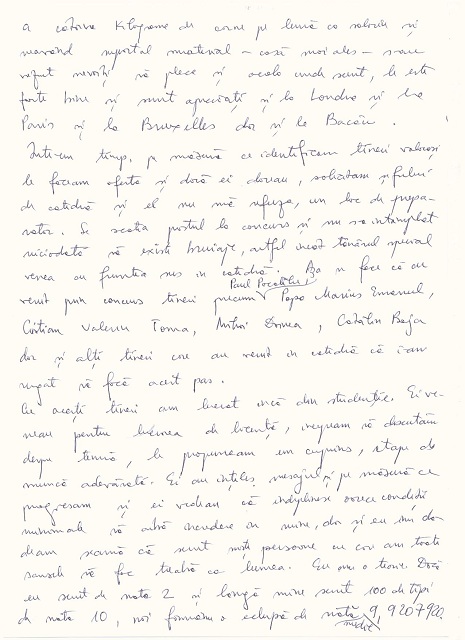 a câtorva Kilograme de carne pe lună ca salariu și
neavând suportul material – casă mai ales – s-au
văzut nevoiți să plece și acolo unde sunt, le este
foarte bine și sunt apreciați și la Londra și la
Paris și la Bruxelles dar și la Bacău.
Într-un timp, pe măsură ce identificam tineri valoroși
le făceam oferta și dacă ei doreau, solicitam șefului
de catedră și el nu mă refuza, un loc de prepa-
rator. Se scotea postul la concurs și nu s-a întâmplat
niciodată să existe bruiaje, astfel încât tânărul special
venea cu fruntea sus în catedră. Așa se face că au
venit prin concurs tineri precum Paul Pocatilu, Popa Marius Emanuel,
Cristian Valeriu Toma, Mihai Doinea, Cătălin Boja
dar și alți tineri care au venit în catedră că i-am
rugat să facă acest pas.
Cu acești tineri am lucrat încă din studenție. Ei ve-
neau pentru lucrarea de licență, începeam să discutăm
despre temă, le propuneam un cuprins, etape de
muncă adevărată. Ei au înțeles mesajul și pe măsură ce
progresam și ei vedeau că îndeplinesc oarece condiții
minimale să aibă încredere în mine, dar și eu îmi dă-
deam seama că sunt niște persoane cu care am toate
șansele să fac treabă ca lumea. Eu am o teorie. Dacă
eu sunt de nota 2 și lângă mine sunt 100 de tipi
de nota 10, noi formăm o echipă de notă medie 9,9207920.